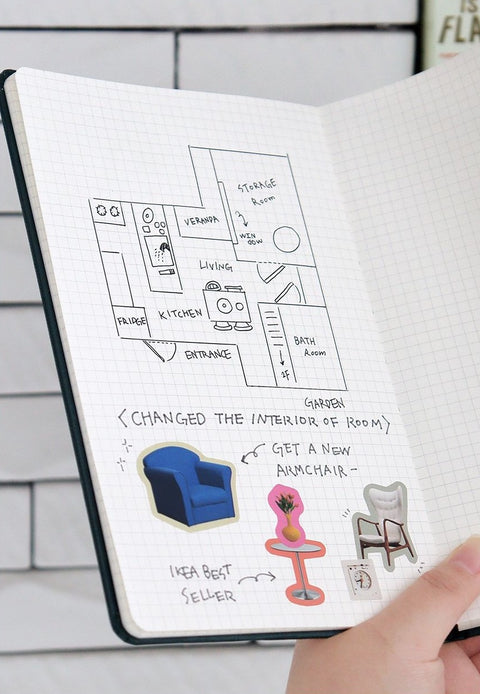 IS
STORAGE
Room
VERANDA
WIN
DOW
LIVING
FRIDGE
KITCHEN
BATH
Room
ENTRANCE
2F
GARDEN
<CHANGED THE INTERIOR OF ROOM>
GET A NEW
ARMCHAIR-
IKEA BEST
SELLER